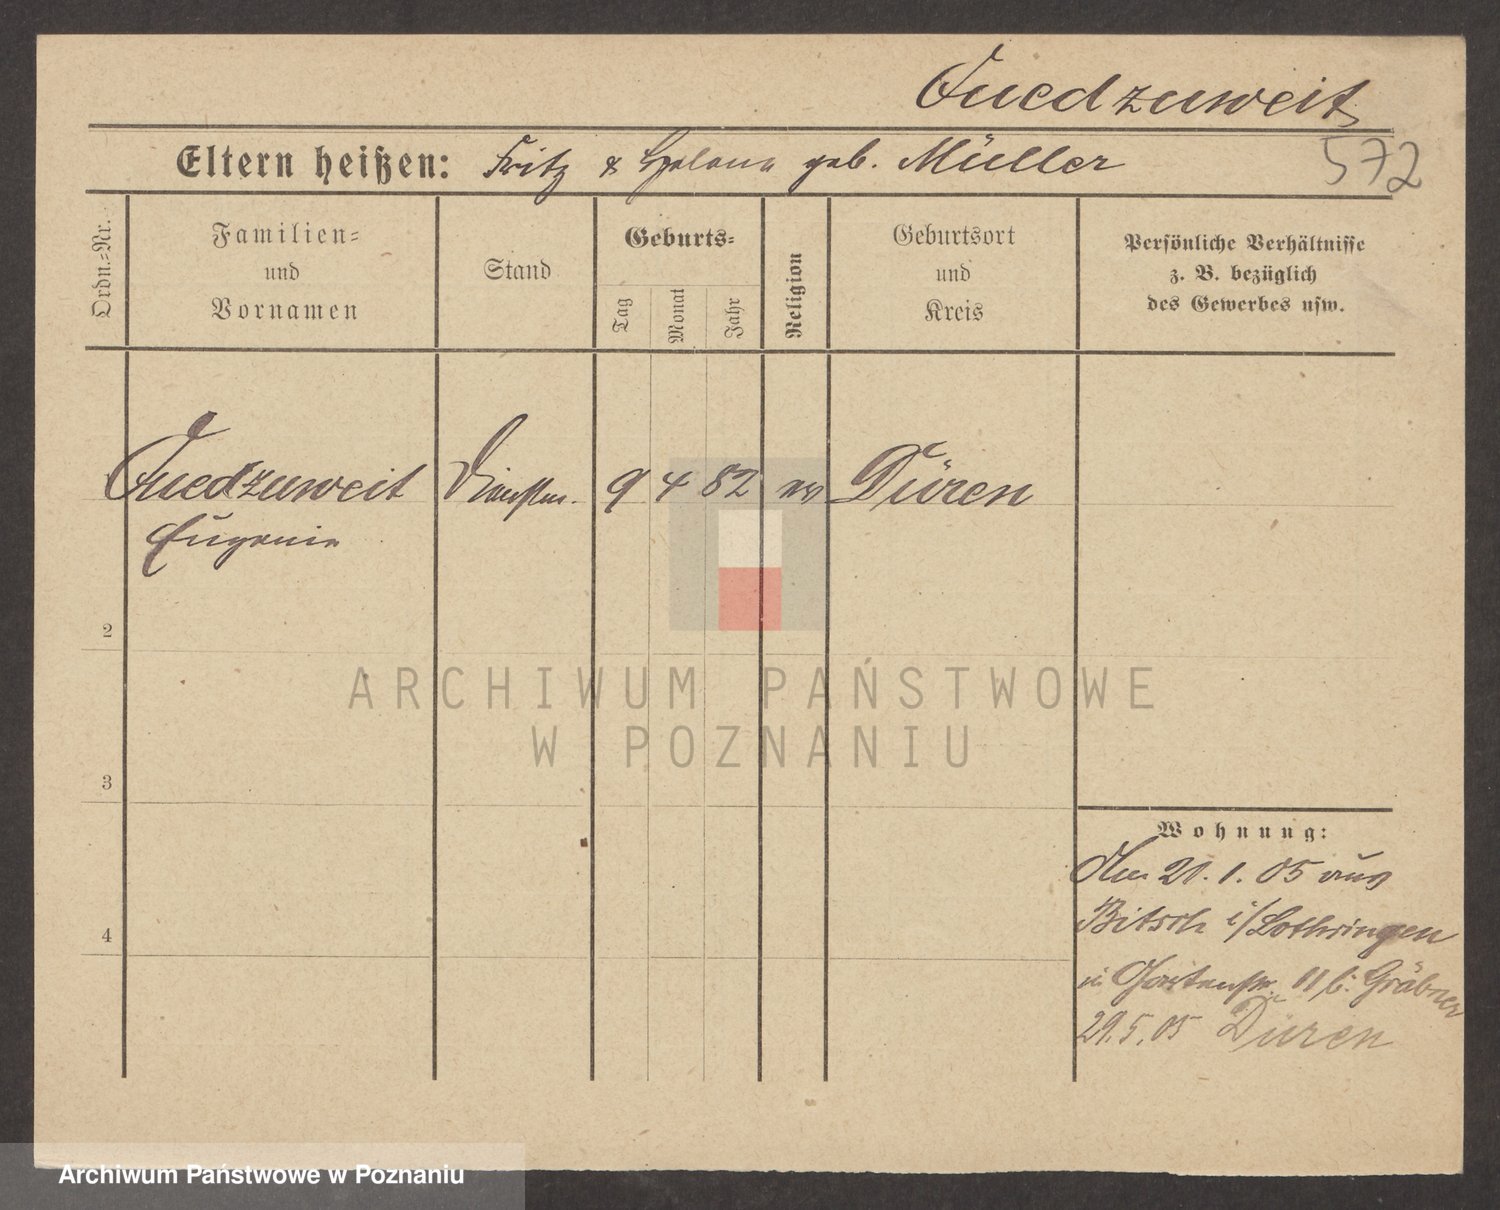 Fuedzuweit
Eltern heißen: Fritz & Helene geb. Müller
572
Ordn.-Nr.
Familien-
und
Vornamen
Stand
Geburts-
Tag
Monat
Jahr
Religion
Geburtsort
und
Kreis
Persönliche Verhältnisse
z. B. bezüglich
des Gewerbes usw.
Fuedzuweit 9 4 82 ev Düren
Eugenie
2
3
4
Wohnung:
Am 21. 1. 05 aus
Bitsch i/Lothringen
n. Gartenstr. 11 b. Gräbner
29. 5. 05 Düren
ARCHIWUM PAŃSTWOWE
W POZNANIU
Archiwum Państwowe w Poznaniu